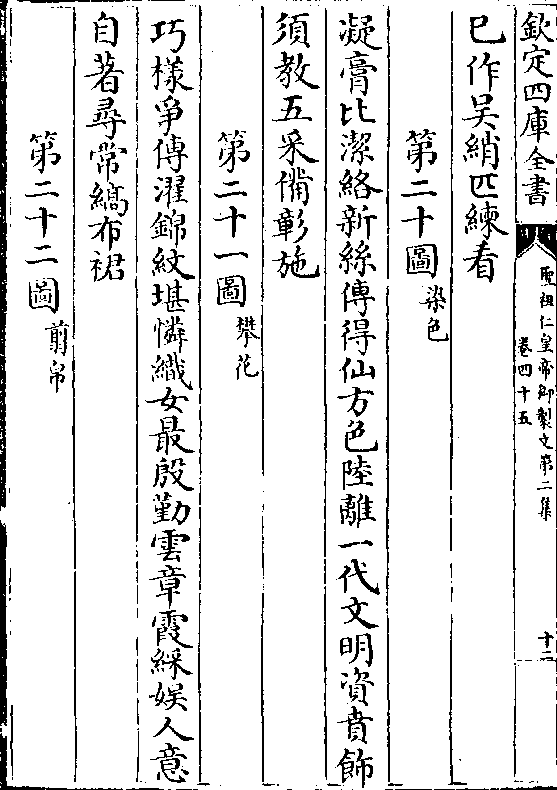 欽定四庫全書
聖祖仁皇帝御製文第二集
卷四十五
十二
已作吴綃匹練看
第二十圖染色
凝膏比潔絡新絲傳得仙方色陸離一代文明資賁飾
須教五采備彰施
第二十一圖攀花
巧様爭傳濯錦紋堪憐織女最殷勤雲章霞綵娱人意
自著尋常縞布裙
第二十二圖剪帛